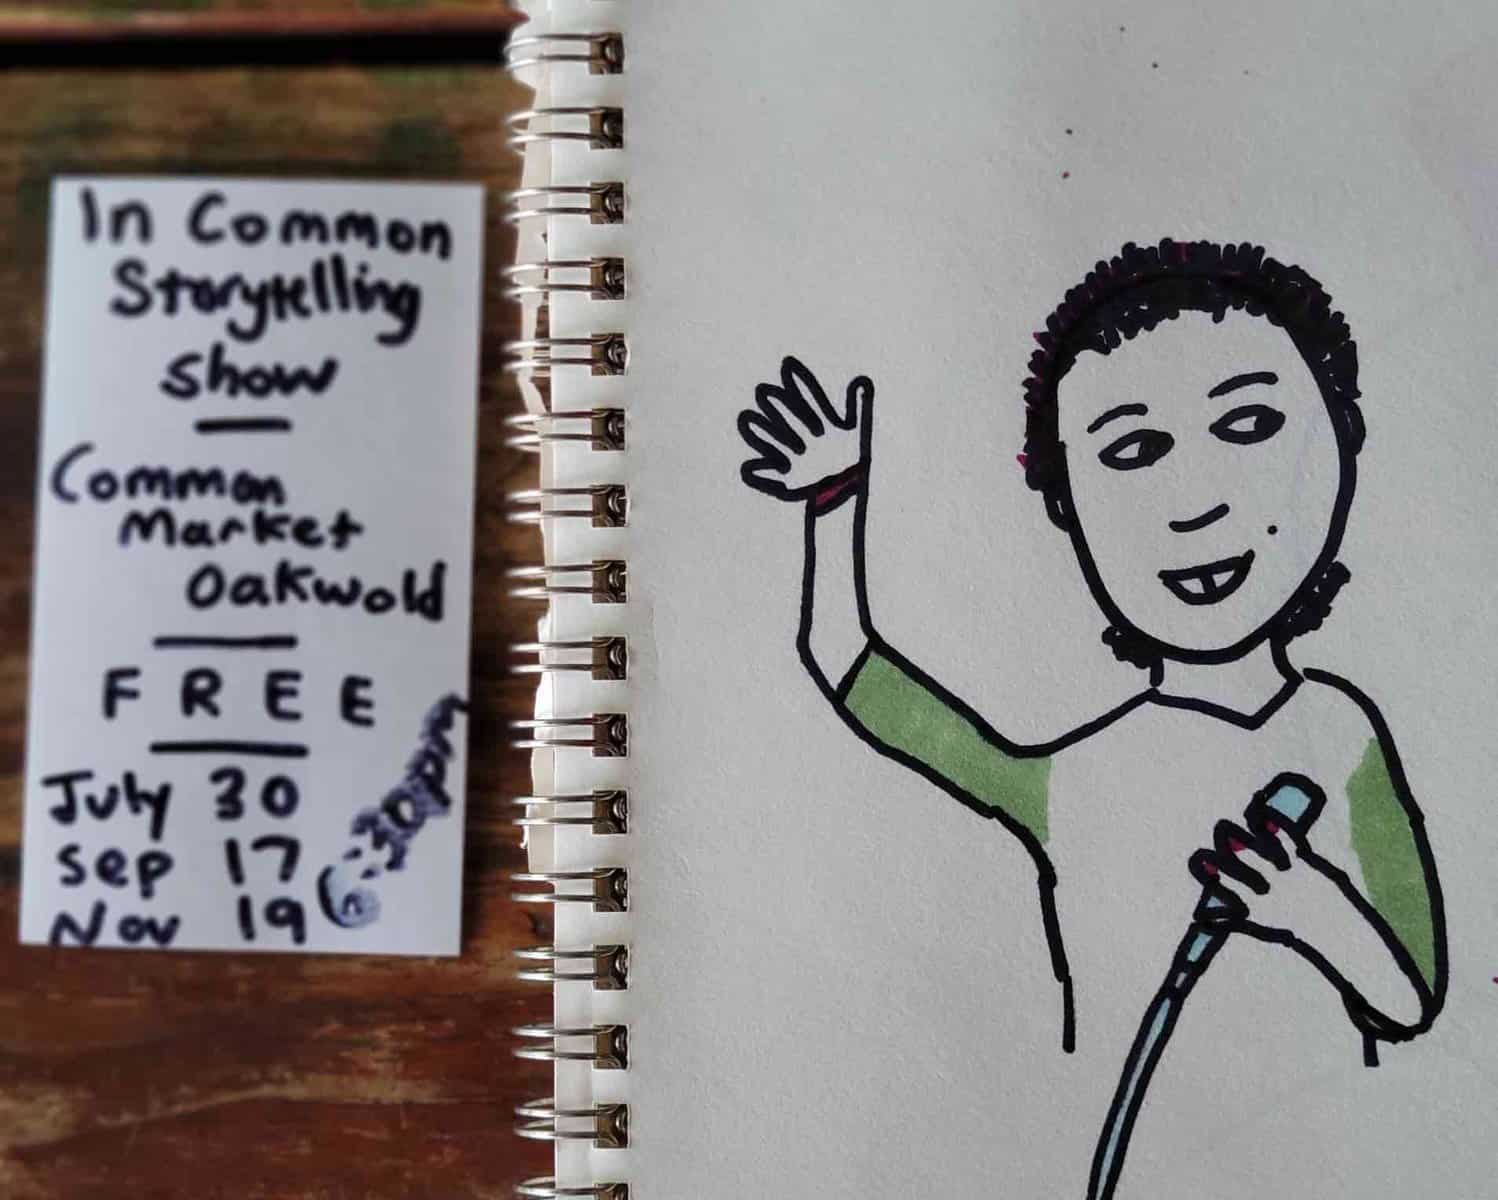 In Common
Storytelling
Show
Common
Market
Oakwold
FREE
July 30
Sep 17
Nov 19
6:30pm